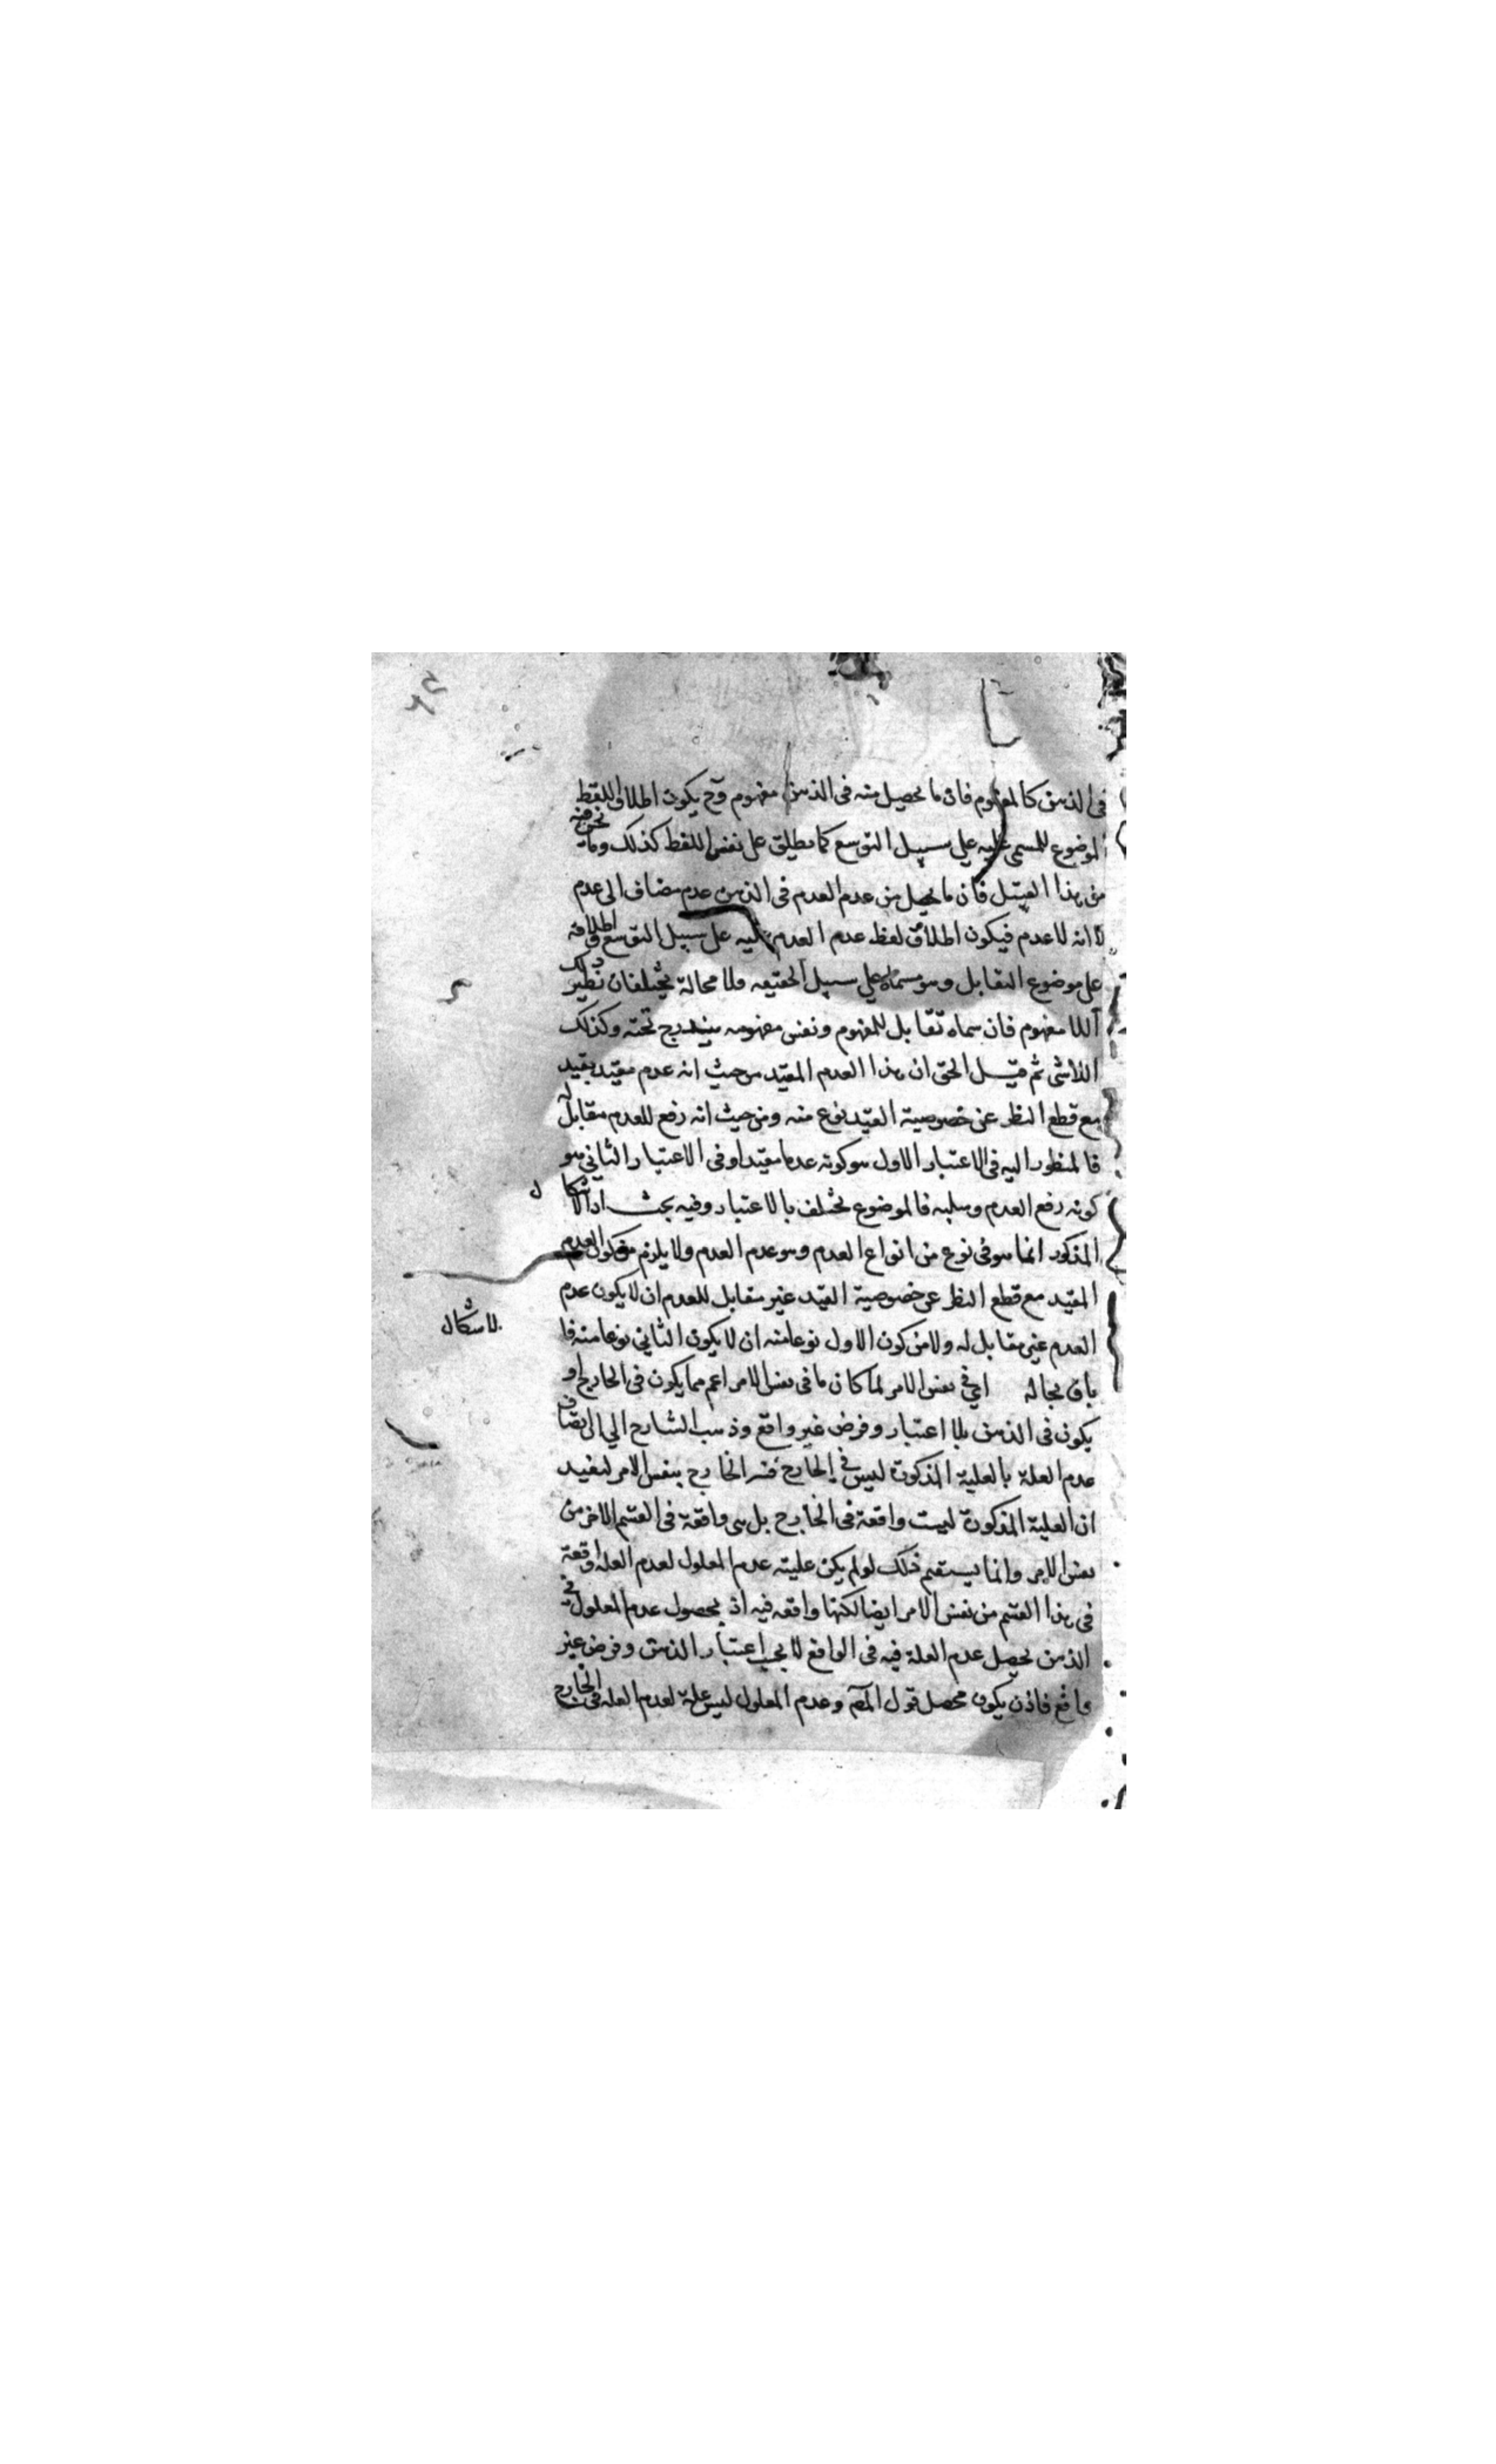 فى الذهن كالمفهوم فان ما يحصل منه فى الذهن مفهوم وح يكون اطلاق اللفظ
الموضوع للمسمى عليه على سبيل التوسع كما يطلق على نفس اللفظ كذلك وما نحن فيه
من هذا القبيل فان ما يحصل من عدم العدم فى الذهن عدم مضاف الى عدم
لا انه لا عدم فيكون اطلاق لفظ عدم العدم عليه على سبيل التوسع واطلاقه
على موضوع التقابل وهو مسماه على سبيل الحقيقه ولا محالة يختلفان نظير ذلك
اللا مفهوم فان سماه تقابل للمفهوم ونفس مفهومه يندرج تحته وكذلك
اللاشى ثم قيل الحق ان هذا العدم المقيد من حيث انه عدم مقيد بقيد
مع قطع النظر عن خصوصية القيد نوع منه ومن حيث انه رفع للعدم مقابل له
فالمنظور اليه فى الاعتبار الاول هو كونه عدما مقيدا وفى الاعتبار الثانى هو
كونه رفع العدم وسلبه فالموضوع يختلف بالاعتبار وفيه بحث اذ الاشكال
المذكور انما هو فى نوع من انواع العدم وهو عدم العدم ولا يلزم من كون العدم
المقيد مع قطع النظر عن خصوصية القيد غير مقابل للعدم ان لا يكون عدم
العدم غير مقابل له ولا من كون الاول نوعا منه ان لا يكون الثانى نوعا منه فا
لاشكال
باق بحاله اى فى نفس الامر لما كان ما فى نفس الامر اعم مما يكون فى الخارج او
يكون فى الذهن بلا اعتبار وفرض غير واقع وذهب الشارح الى ان اتصاف
عدم العلة بالعلية المذكورة ليس فى الخارج فسر الخارج بنفس الامر ليفيد
ان العلية المذكورة ليست واقعة فى الخارج بل هى واقعة فى القسم الاخر من
نفس الامر وانما يستقيم ذلك لو لم يكن علية عدم المعلول لعدم العلة واقعة
فى هذا القسم من نفس الامر ايضا لكنها واقعه فيه اذ بحصول عدم المعلول فى
الذهن يحصل عدم العلة فيه فى الواقع لا بحسب اعتبار الذهن وفرض غير
واقع فاذن يكون محصل قول المصم وعدم المعلول ليس علة لعدم العله فى الخارج